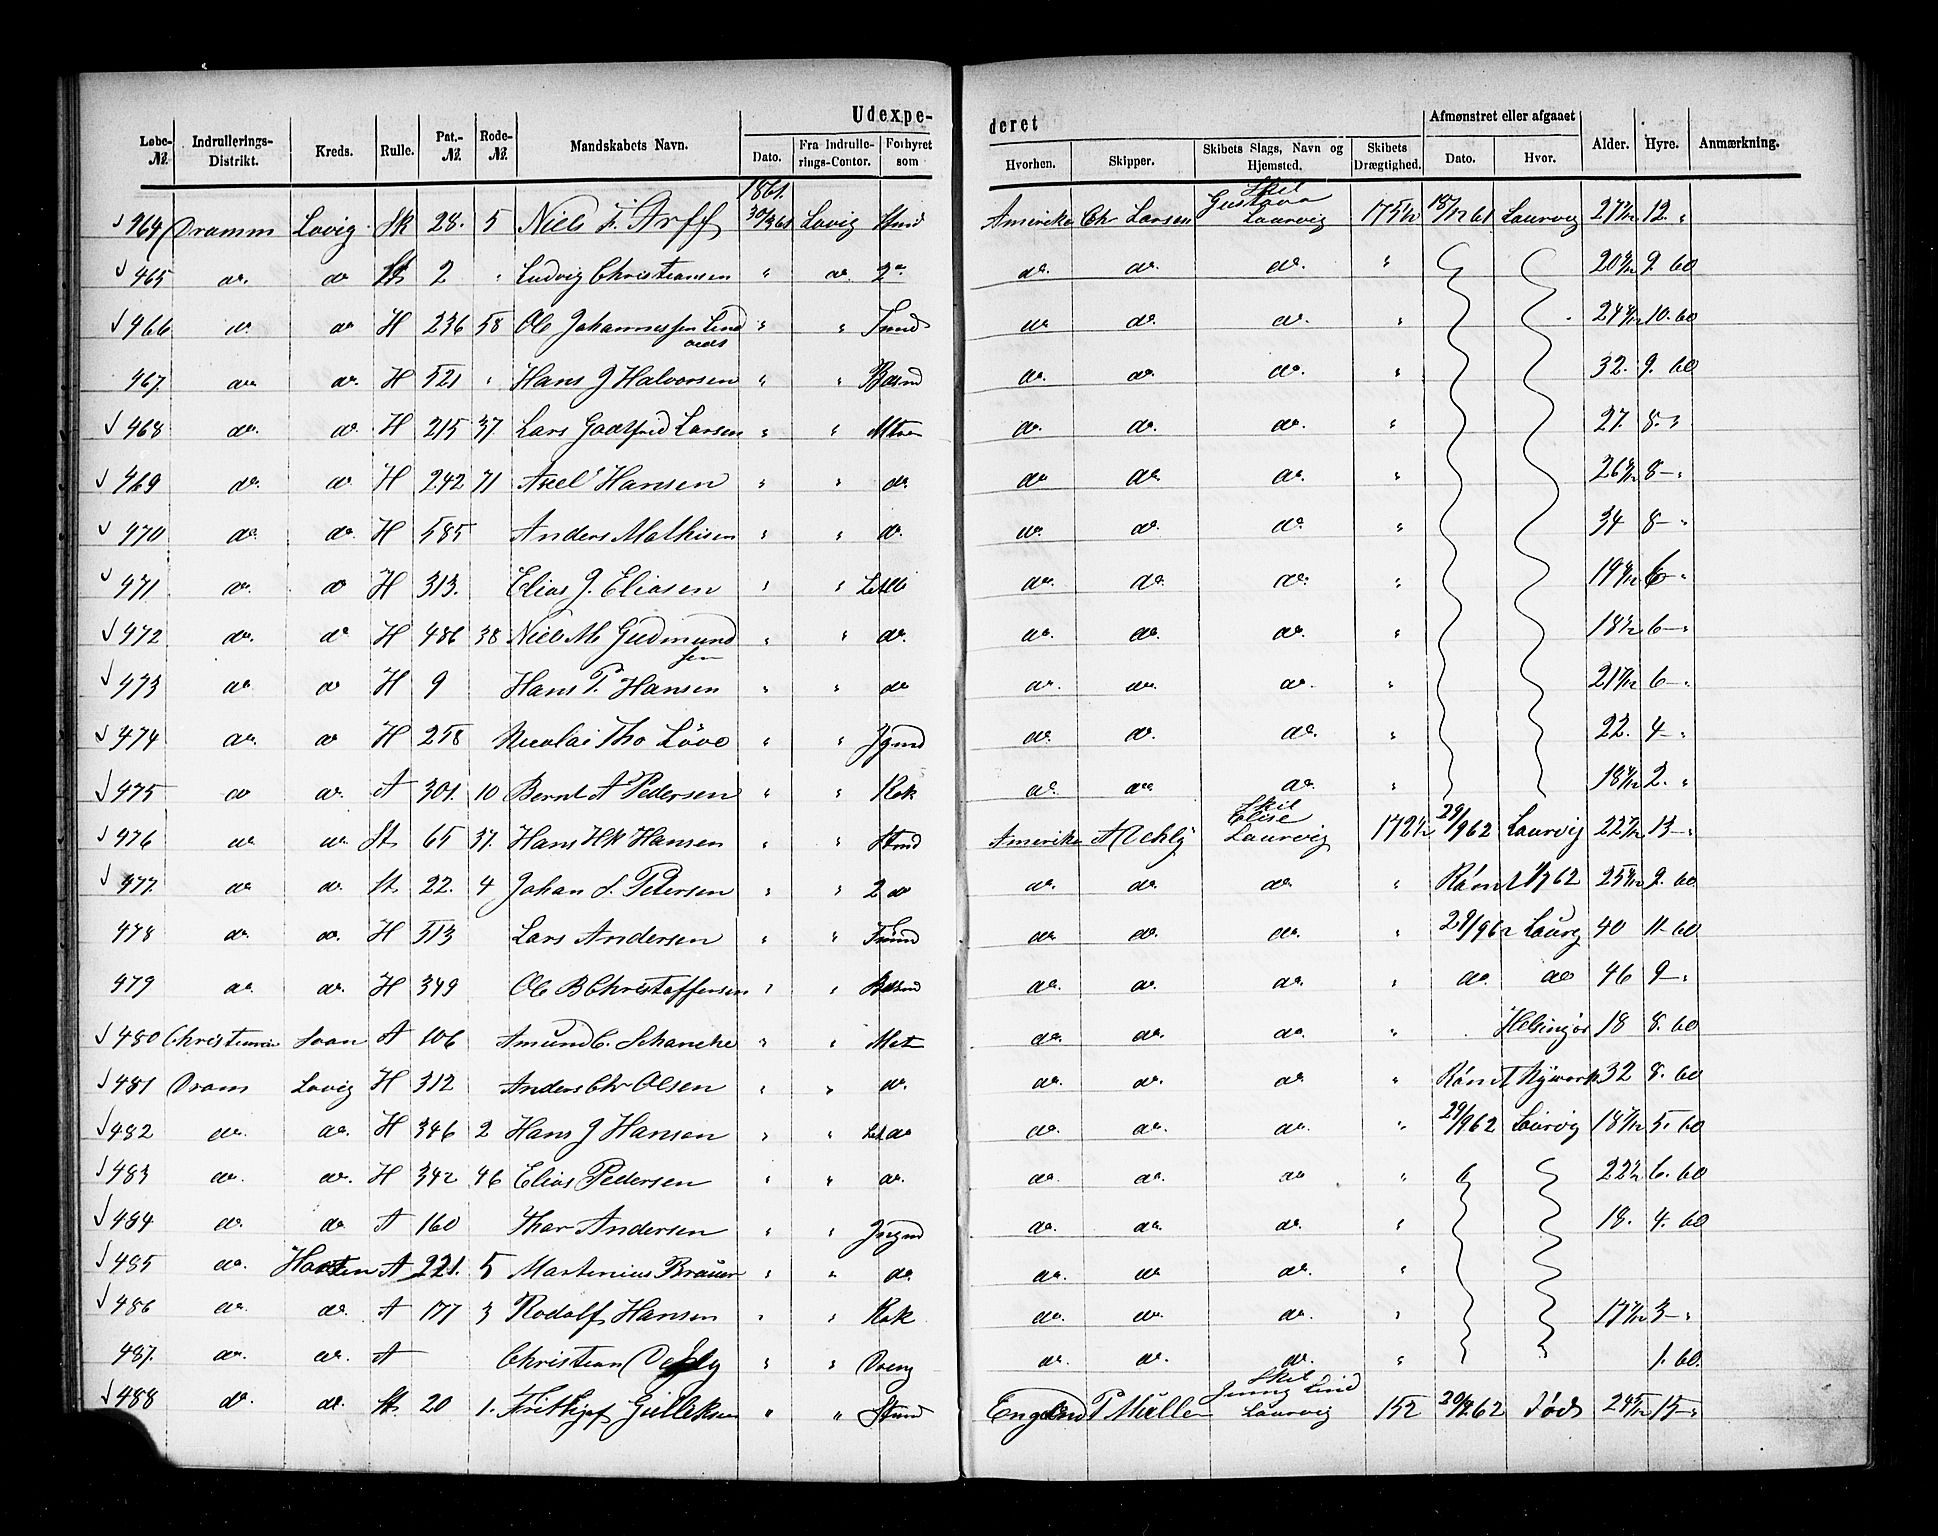 Udexpe-
deret
Løbe- №. Indrullerings- Distrikt. Kreds. Rulle. Pat.- №. Rode- №. Mandskabets Navn. Dato. Fra Indrulle- rings-Contor. Forhyret som Hvorhen. Skipper. Skibets Slags, Navn og Hjemsted. Skibets Drægtighed. Afmønstret eller afgaaet Dato. Hvor. Alder. Hyre. Anmærkning.
1861.
464 Dramm Lavig. Sk 28. 5 Niels F. Arff 30/3 61 Lavig Stmd Amerika Chr Larsen Skib Gustava Laurvig 175½ 18/12 61 Laurvig 12 "
465 do. do St 2 " Ludvig Christiansen " do. 2do do. do. do. " 9. 60
466 do do H 236 58 Ole Johannessen Lind " " Tmd do do. do. " 10. 60
467. do. do. H 521 " Hans J Halvorsen " " Bdsmd do. do. do. " 32. 9. 60
468 do. do. H 215 37 Lars Godtfred Larsen " " Mtr do. do. do. " 27. 8. "
469 do. do H 242 71 Axel Hansen " " do. do. do. do. " 8 - "
470 do. do. H 585 Anders Mathisen " " do. do. do. do. " 34 8 - "
471 do. do H 313. Elias J. Eliasen " " do. do. do. " 6 - "
472 do. do H 486 38 Niels M Gudmund " " do. do. do. do. " 6 - "
sen
473 do do H 9 Hans P. Hansen " " do do. do. do. " 6 - "
474 do. do H 258 Nicolai Tho Löve " " Jgmd do. do. do. " 22. 4 - "
475 do do. A 301. 10 Bernt A Pedersen " " Kok do. do. do. " 2. "
476 do. do. St 65 37. Hans Hk Hansen " " Stmd Amerika A Oehly Skib Elise Laurvig 172½ 29/9 62 Laurvig 13 - "
477. do do. St. 22. 4 Johan S. Petersen " " 2 do do. do. do. " Rømt 62 9. 60
478 do. do. H 513 Lars Andersen " " Tmd do. do. do. " 29/9 62 Laurvg 40 11 - 60
479 do. do. H 349 Ole B Christoffersen " " Bdsmd do. do. do. " do. do 46 9 - "
480 Christiania A 106 Amund C. Schancke " " Mat do. do. do. " Helsingør 18 8. 60
481 Dram Lavig H 312 Anders Chr Olsen " " do. do. do. do. " Rømt Nÿwork 32 8. 60
482 do. do. H 346 2 Hans J Hansen " " do do. do. do. " 29/9 62 Laurvig 5. 60
483 do. do. H 342 46 Elias Pedersen " " do. do. do. do " 6. 60
484 do. do. A 160 Thor Andersen " " Jngmd do. do. do. " 18. 4. 60
485 do. Horten A 221. 5 Martinius Braüer " " do. do. do do. "
486 do. do. A 177 3 Rodolf Hansen " " Kok do. do. do. " 3 - "
487. do. do. A Christian Oehly " " Dreng do. do. do. " 1. 60.
488 do do. St. 20 1. Frithjof Gulliksen " " Stmd England P Müller Skib Jenny Lind Laurvig 152 62 Død 15 - "